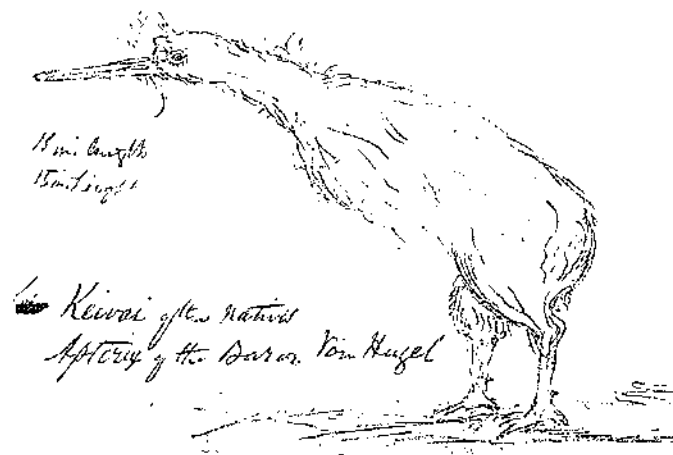 18 in: length
15 in: height
Keivoi of the natives
Apterix of the Baron Von Hugel